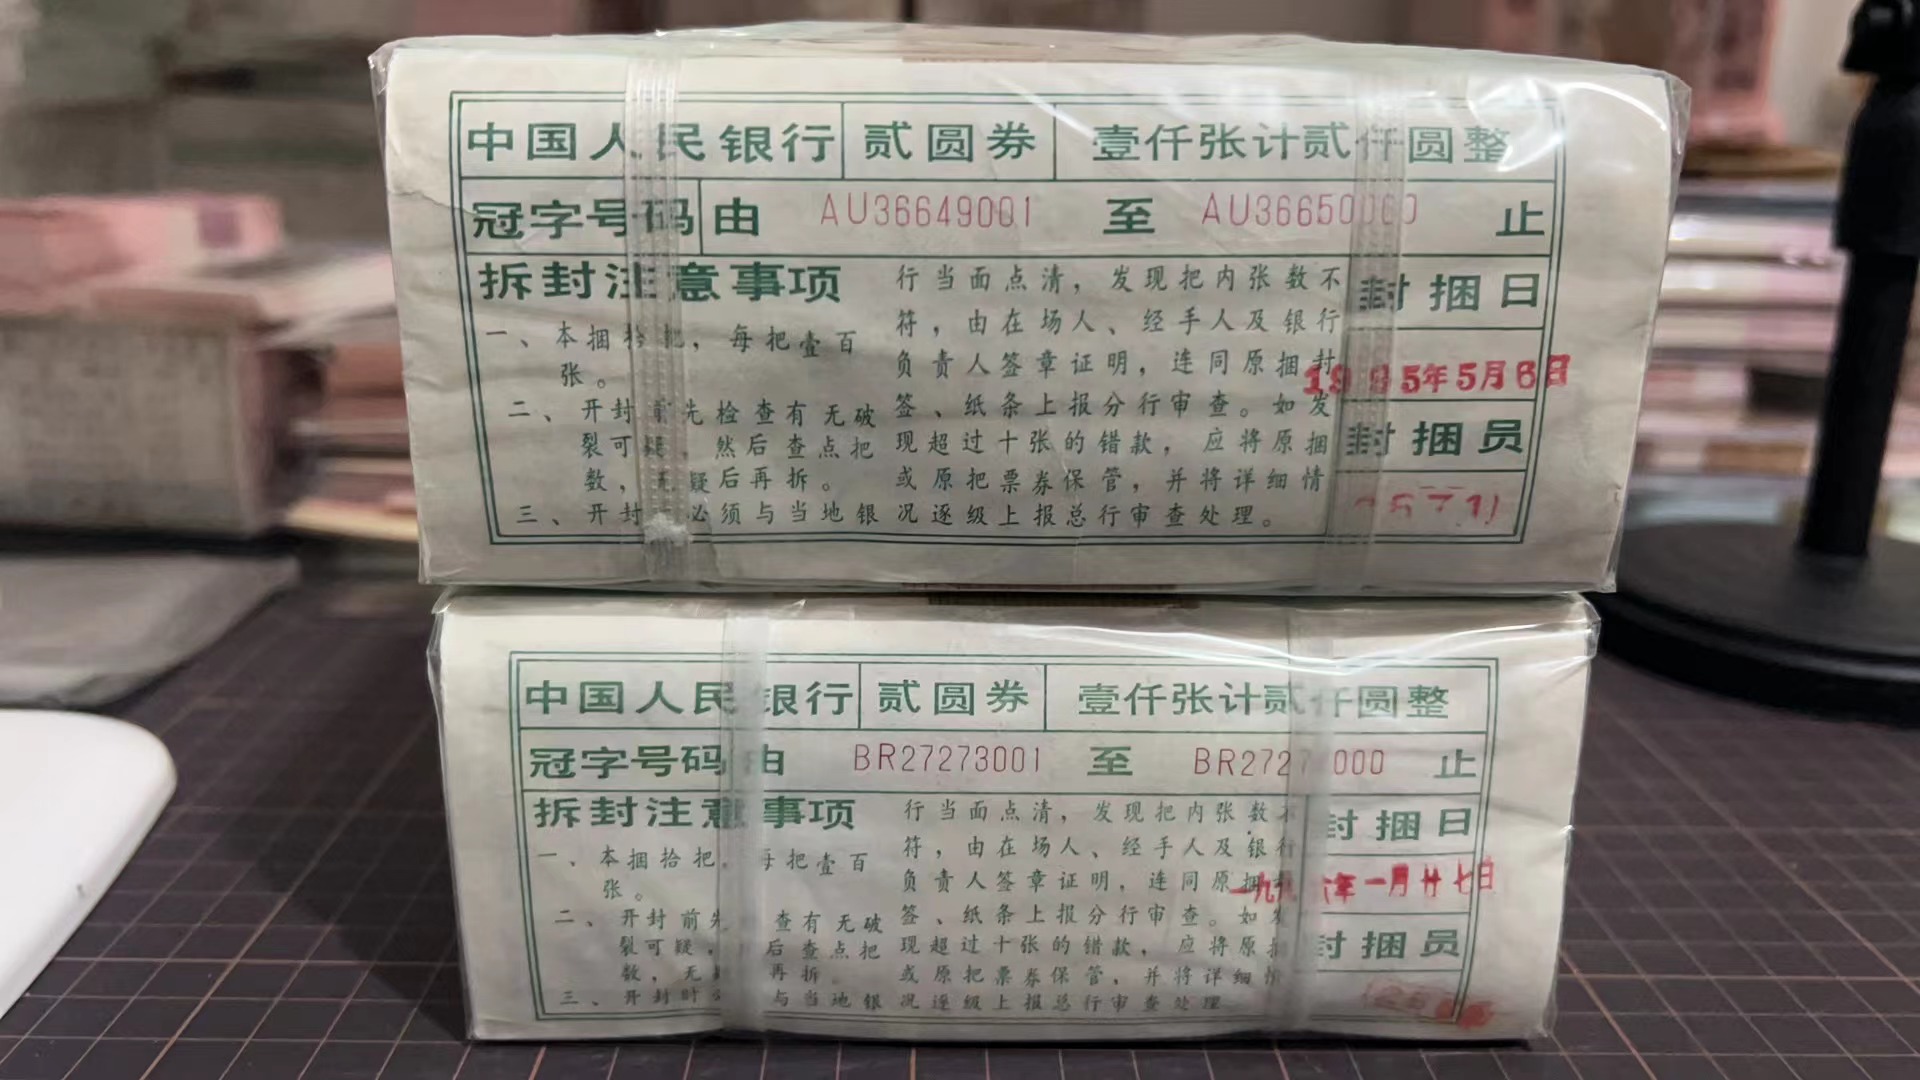 中国人民银行 贰圆券 壹仟张计贰仟圆整
冠字号码 由 AU36649001 至 AU36650000 止
拆封注意事项
一、本捆拾把，每把壹百
张。
二、开封前先检查有无破
裂可疑，然后查点把
数，无疑后再拆。
三、开封 必须与当地银
行当面点清，发现把内张数不
符，由在场人、经手人及银行
负责人签章证明，连同原捆封
签、纸条上报分行审查。如发
现超过十张的错款，应将原捆
或原把票券保管，并将详细情
况逐级上报总行审查处理。
封捆日
1995年5月6日
封捆员
中国人民银行 贰圆券 壹仟张计贰仟圆整
冠字号码 由 BR27273001 至 BR272 000 止
拆封注意事项
一、本捆拾把，每把壹百
张。
二、开封前先 查有无破
裂可疑， 后查点把
数，无疑 再拆
三、开封时 与当地银
行当面点清，发现把内张数不
符，由在场人、经手人及银行
负责人签章证明，连同原捆
签、纸条上报分行审查。如发
现超过十张的错款，应将原捆
或原把票券保管，并将详细情
况逐级上报总行审查处理
封捆日
年一月廿七日
封捆员